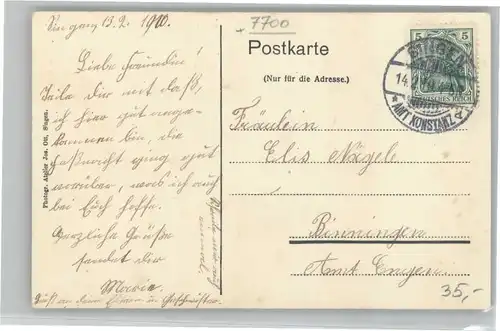 Singen 13.2. 1910.
7700
Liebe Freundin!
Teile dir mit daß,
ich hier gut ange-
kommen bin die
Faßnacht ging gut
vorüber, was ich auch
bei Euch hoffe.
Herzliche Grüße
sendet dir
Marie.
Gruß an deine Eltern u. Geschwister.
Photogr. Atelier Jos. Ott, Singen.
Postkarte
(Nur für die Adresse.)
SINGEN
14
* AMT KONSTANZ
5
DEUTSCHES REICH
Fräulein
Elis Nägele
Binningen
Amt Engen
35,-